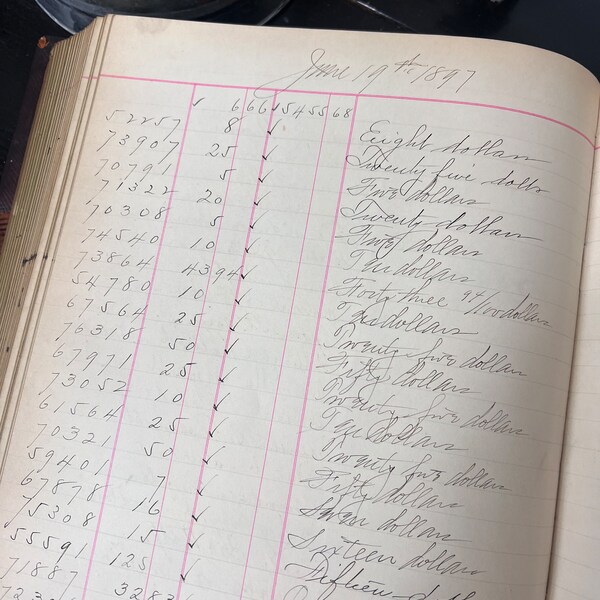 June 19th 1897
✓ 6 66✓545568
52257 8 ✓ Eight dollars
73907 25 ✓ Twenty five dolls
70791 5 ✓ Five dollars
71322 20 ✓ Twenty dollars
70308 5 ✓ Five dollars
74540 10 ✓ Ten dollars
73864 4394 ✓ Forty three 94/100 dollars
54780 10 ✓ Ten dollars
67564 25 ✓ Twenty five dollars
76318 50 ✓ Fifty dollars
67971 25 ✓ Twenty five dollars
73052 10 ✓ Ten dollars
61564 25 ✓ Twenty five dollars
70321 50 ✓ Fifty dollars
59401 7 ✓ Seven dollars
67878 16 ✓ Sixteen dollars
75308 15 ✓ Fifteen
55591 125 ✓
71887 3283